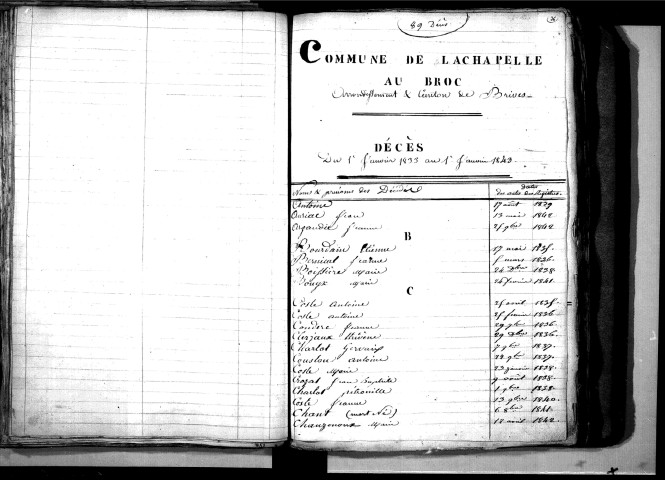 89 Décès
COMMUNE DE LACHAPELLE
AU BROC
Arrondissement & Canton de Brives
DÉCÈS
Du 1er Janvier 1833 au 1er Janvier 1843.
Noms & prénoms des Décédés
Dates
des actes des Registres.
Antoine 17 août 1839
Auriac Jean 13 mai 1842
Jeanne 25 9bre 1842
B
Bourdain Etienne 17 mai 1835.
Bernical Jeanne 5 mars 1836.
Boissière Marie 24 Xbre 1838.
Bouyx Marie 24 février 1841.
C
Coste Antoine 25 avril 1835.
Coste Antoine 25 février 1836
Condere Jeanne 29 9bre 1836.
29 Xbre 1836.
Charlot Gervais 7 9bre 1837.
Couston Antoine 22 9bre 1837.
Coste Marie 23 janvier 1838.
Crozat Jean Baptiste 9 août 1838.
Charlot pétronille 1 9bre 1838.
Coste Jeanne 13 9bre 1840.
Chant (mort né) 6 8bre 1841.
Chauzenoux Marie 18 août 1842.